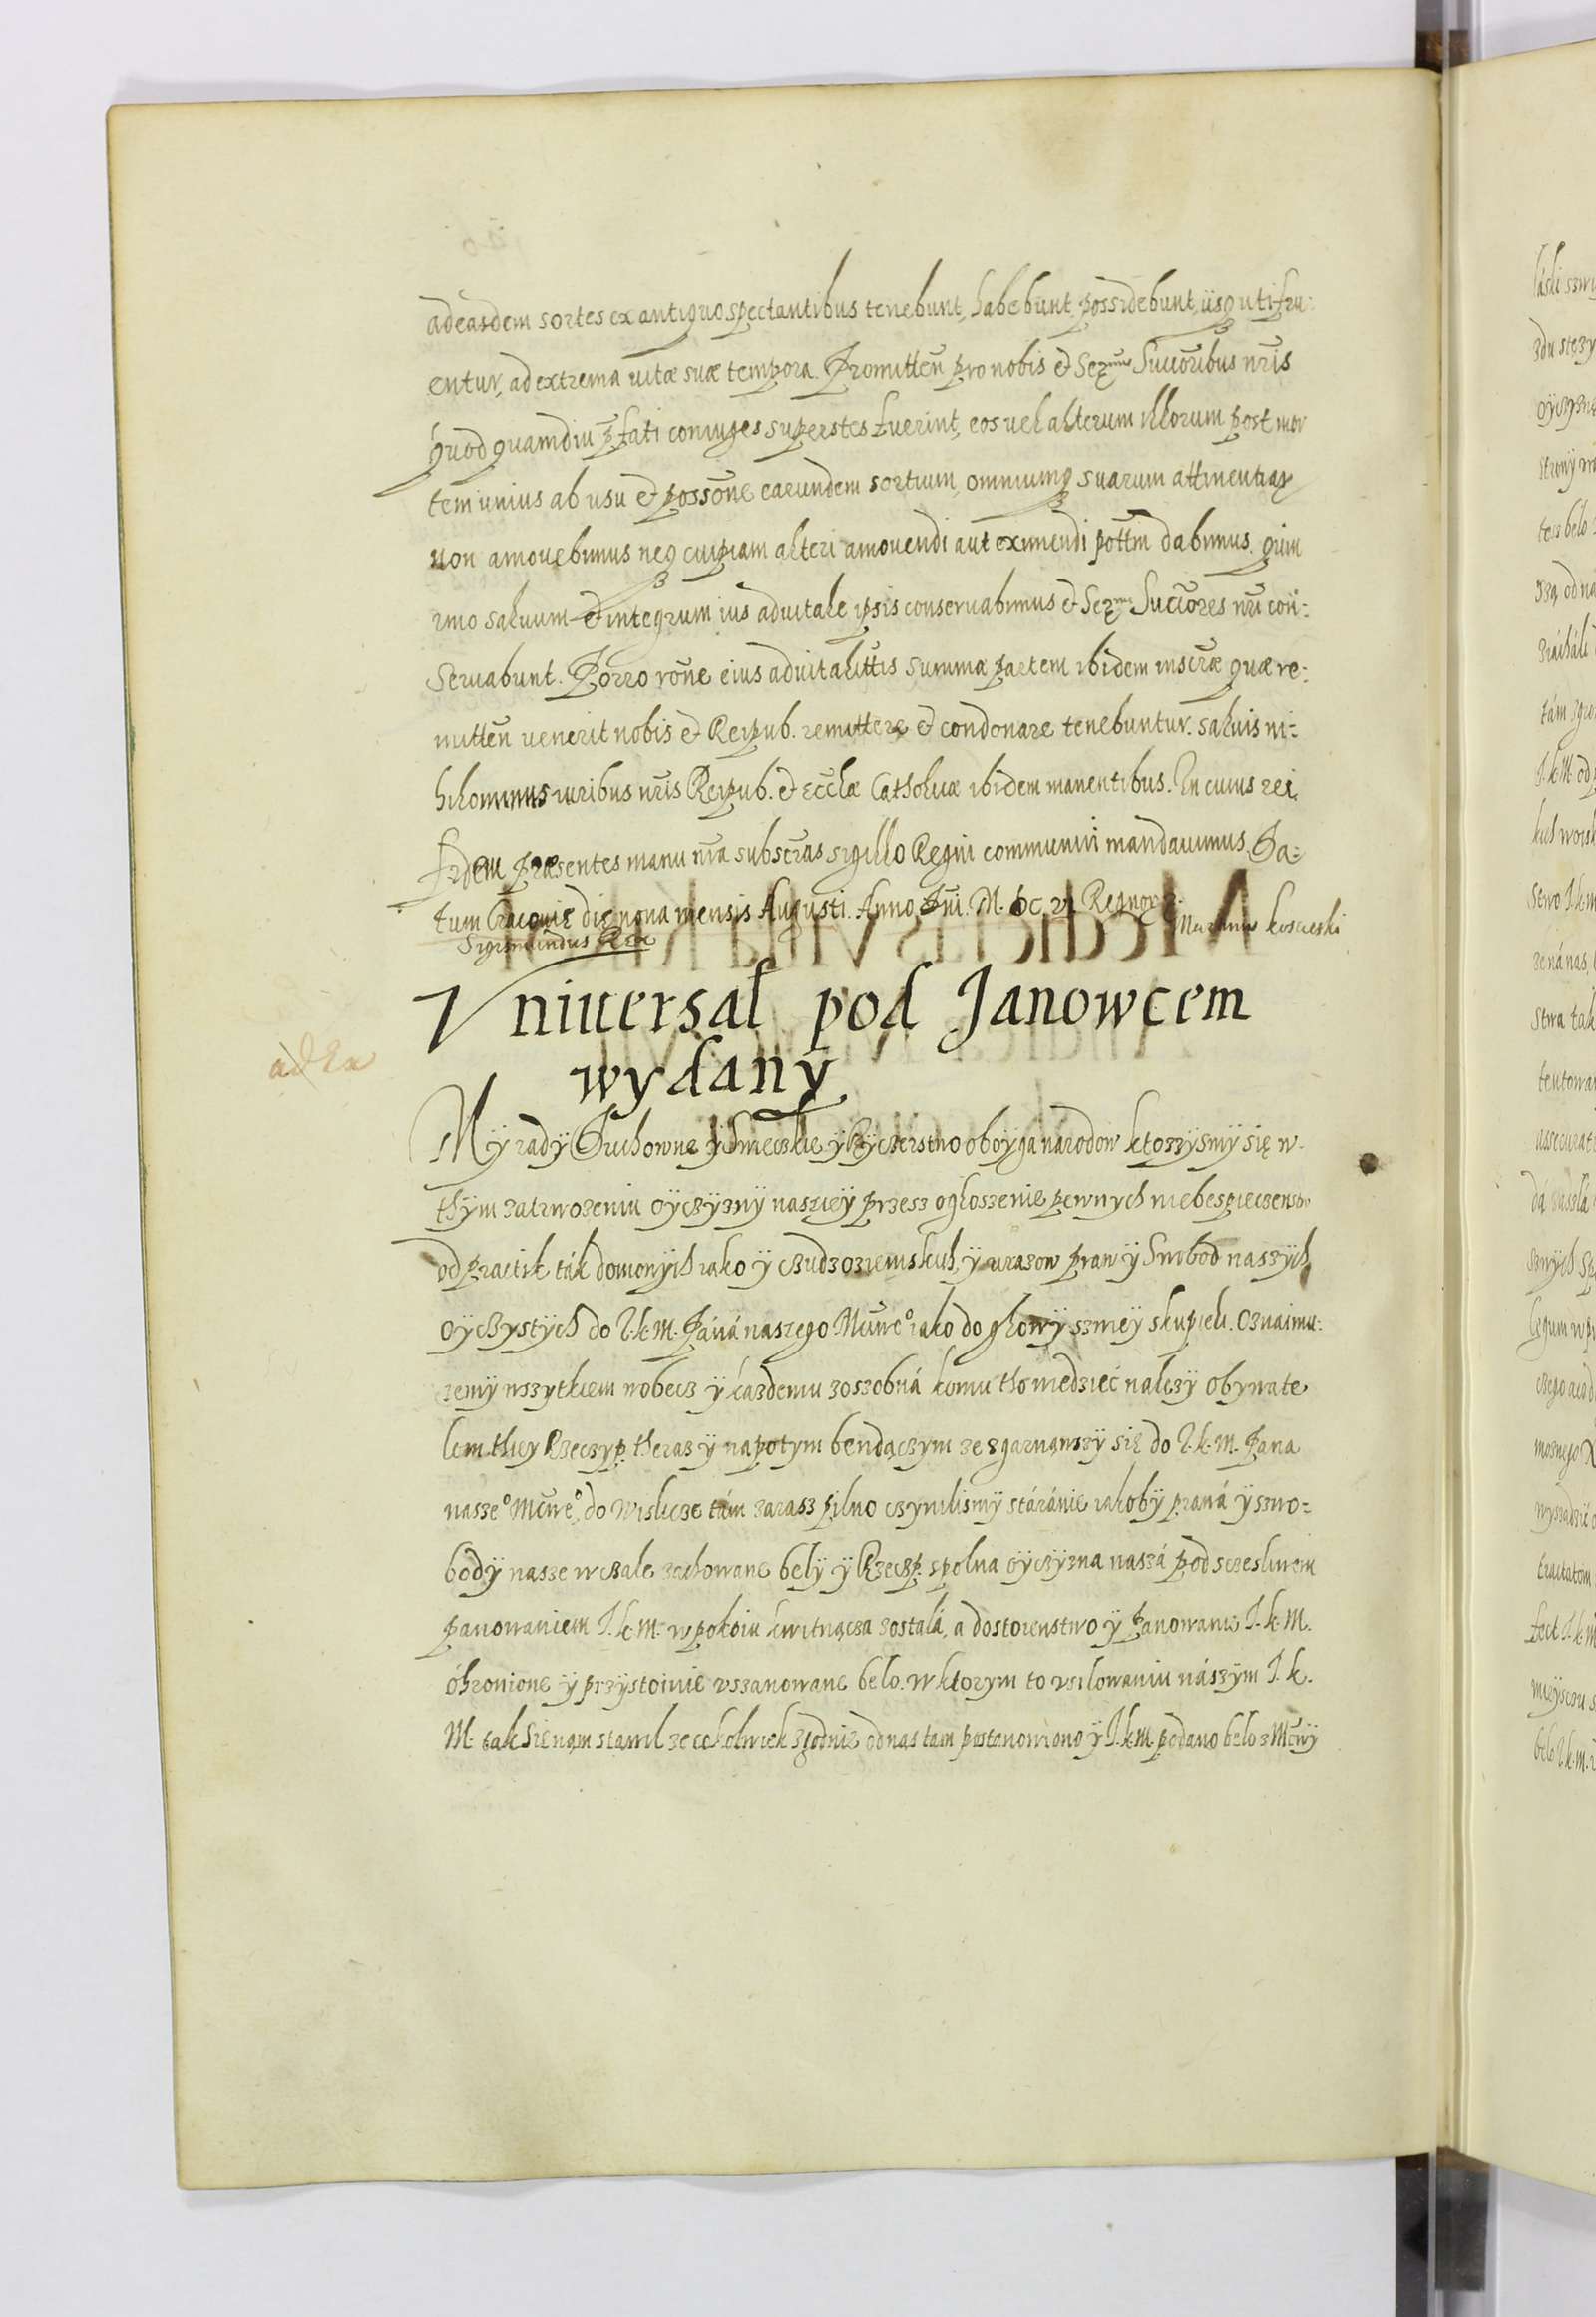 ad easdem sortes ex antiquo spectantibus tenebunt, habebunt, possidebunt, iisq uti fru:
entur, ad extrema vitæ suæ tempora. Promitten pro nobis et Serͫͫ Succoribus nris
quod quamdiu p̃fati coniuges superstes fuerint, eos vel alterum illorum post mor
tem unius ab usu et possone earundem sortium, omniumq suarum attinentiar
non amovebimus neq cuipiam alteri amovendi aut eximendi pottm dabimus. quin
imo salvum et integrum ius advitale ipsis conservabimus et Ser Succores nri con:
servabunt. Porro rone eius advitalittis summæ partem ibidem inscræ quæ re:
mitten venerit nobis et Reipub. remittere et condonare tenebuntur. salvis ni:
hilominus iuribus nris Reipub. et ecclæ Catholicæ ibidem manentibus. In cuius rei
fidem præsentes manu nra subscras sigillo Regni communiri mandavimus. Da:
tum Cracoviæ die nona mensis Augusti. Anno Dni. M. DC. VI. Regnor
Sigismundus Rex
Vniversal pod Janowcem
wydany
Mÿ radÿ Duchowne ÿ Swieczkie ÿ Rÿczerstwo oboÿga narodow ktorzÿsmÿ się w
thÿm zatrwozeniu oÿczÿznÿ naszeÿ przesz ogloszenie pewnych niebespieczenstw
od practik ták domowÿch iako ÿ cudzoziemskich, ÿ urazow praw ÿ Swobod naszÿch
oÿczystÿch do I. k. M. Páná naszego Mciwe° iako do glowÿ szweÿ skupieli. Oznaimu:
zemÿ wszytkiem wobecz ÿ kazdemu zoszobná komu tho wiedziec nalezÿ obywate
lem theÿ Rzeczyp. theraz ÿ napotym bendączym ze zgarnąwszÿ się do I. k. M. Pana
nasze° Mciwe°, do Wislicze tám zarasz pilno czynilismÿ stáránie iakobÿ prawá ÿ szwo=
bodÿ nasze w czale zachowane belÿ ÿ Rzeczp. spolna oÿczÿzna naszá pod sczesliwem
panowaniem I. k. M. w pokoiu kwitnącza zostalá, a dostoienstwo ÿ panowanie I. k. M.
óhronione ÿ przÿstoinie uszanowane belo. w ktorym to usilowaniu nászÿm I. k.
M. tak sie nam stawil ze cokolwiek zgodnie od nas tam postanowiono ÿ I. k. M. podano belo z Mciwÿ